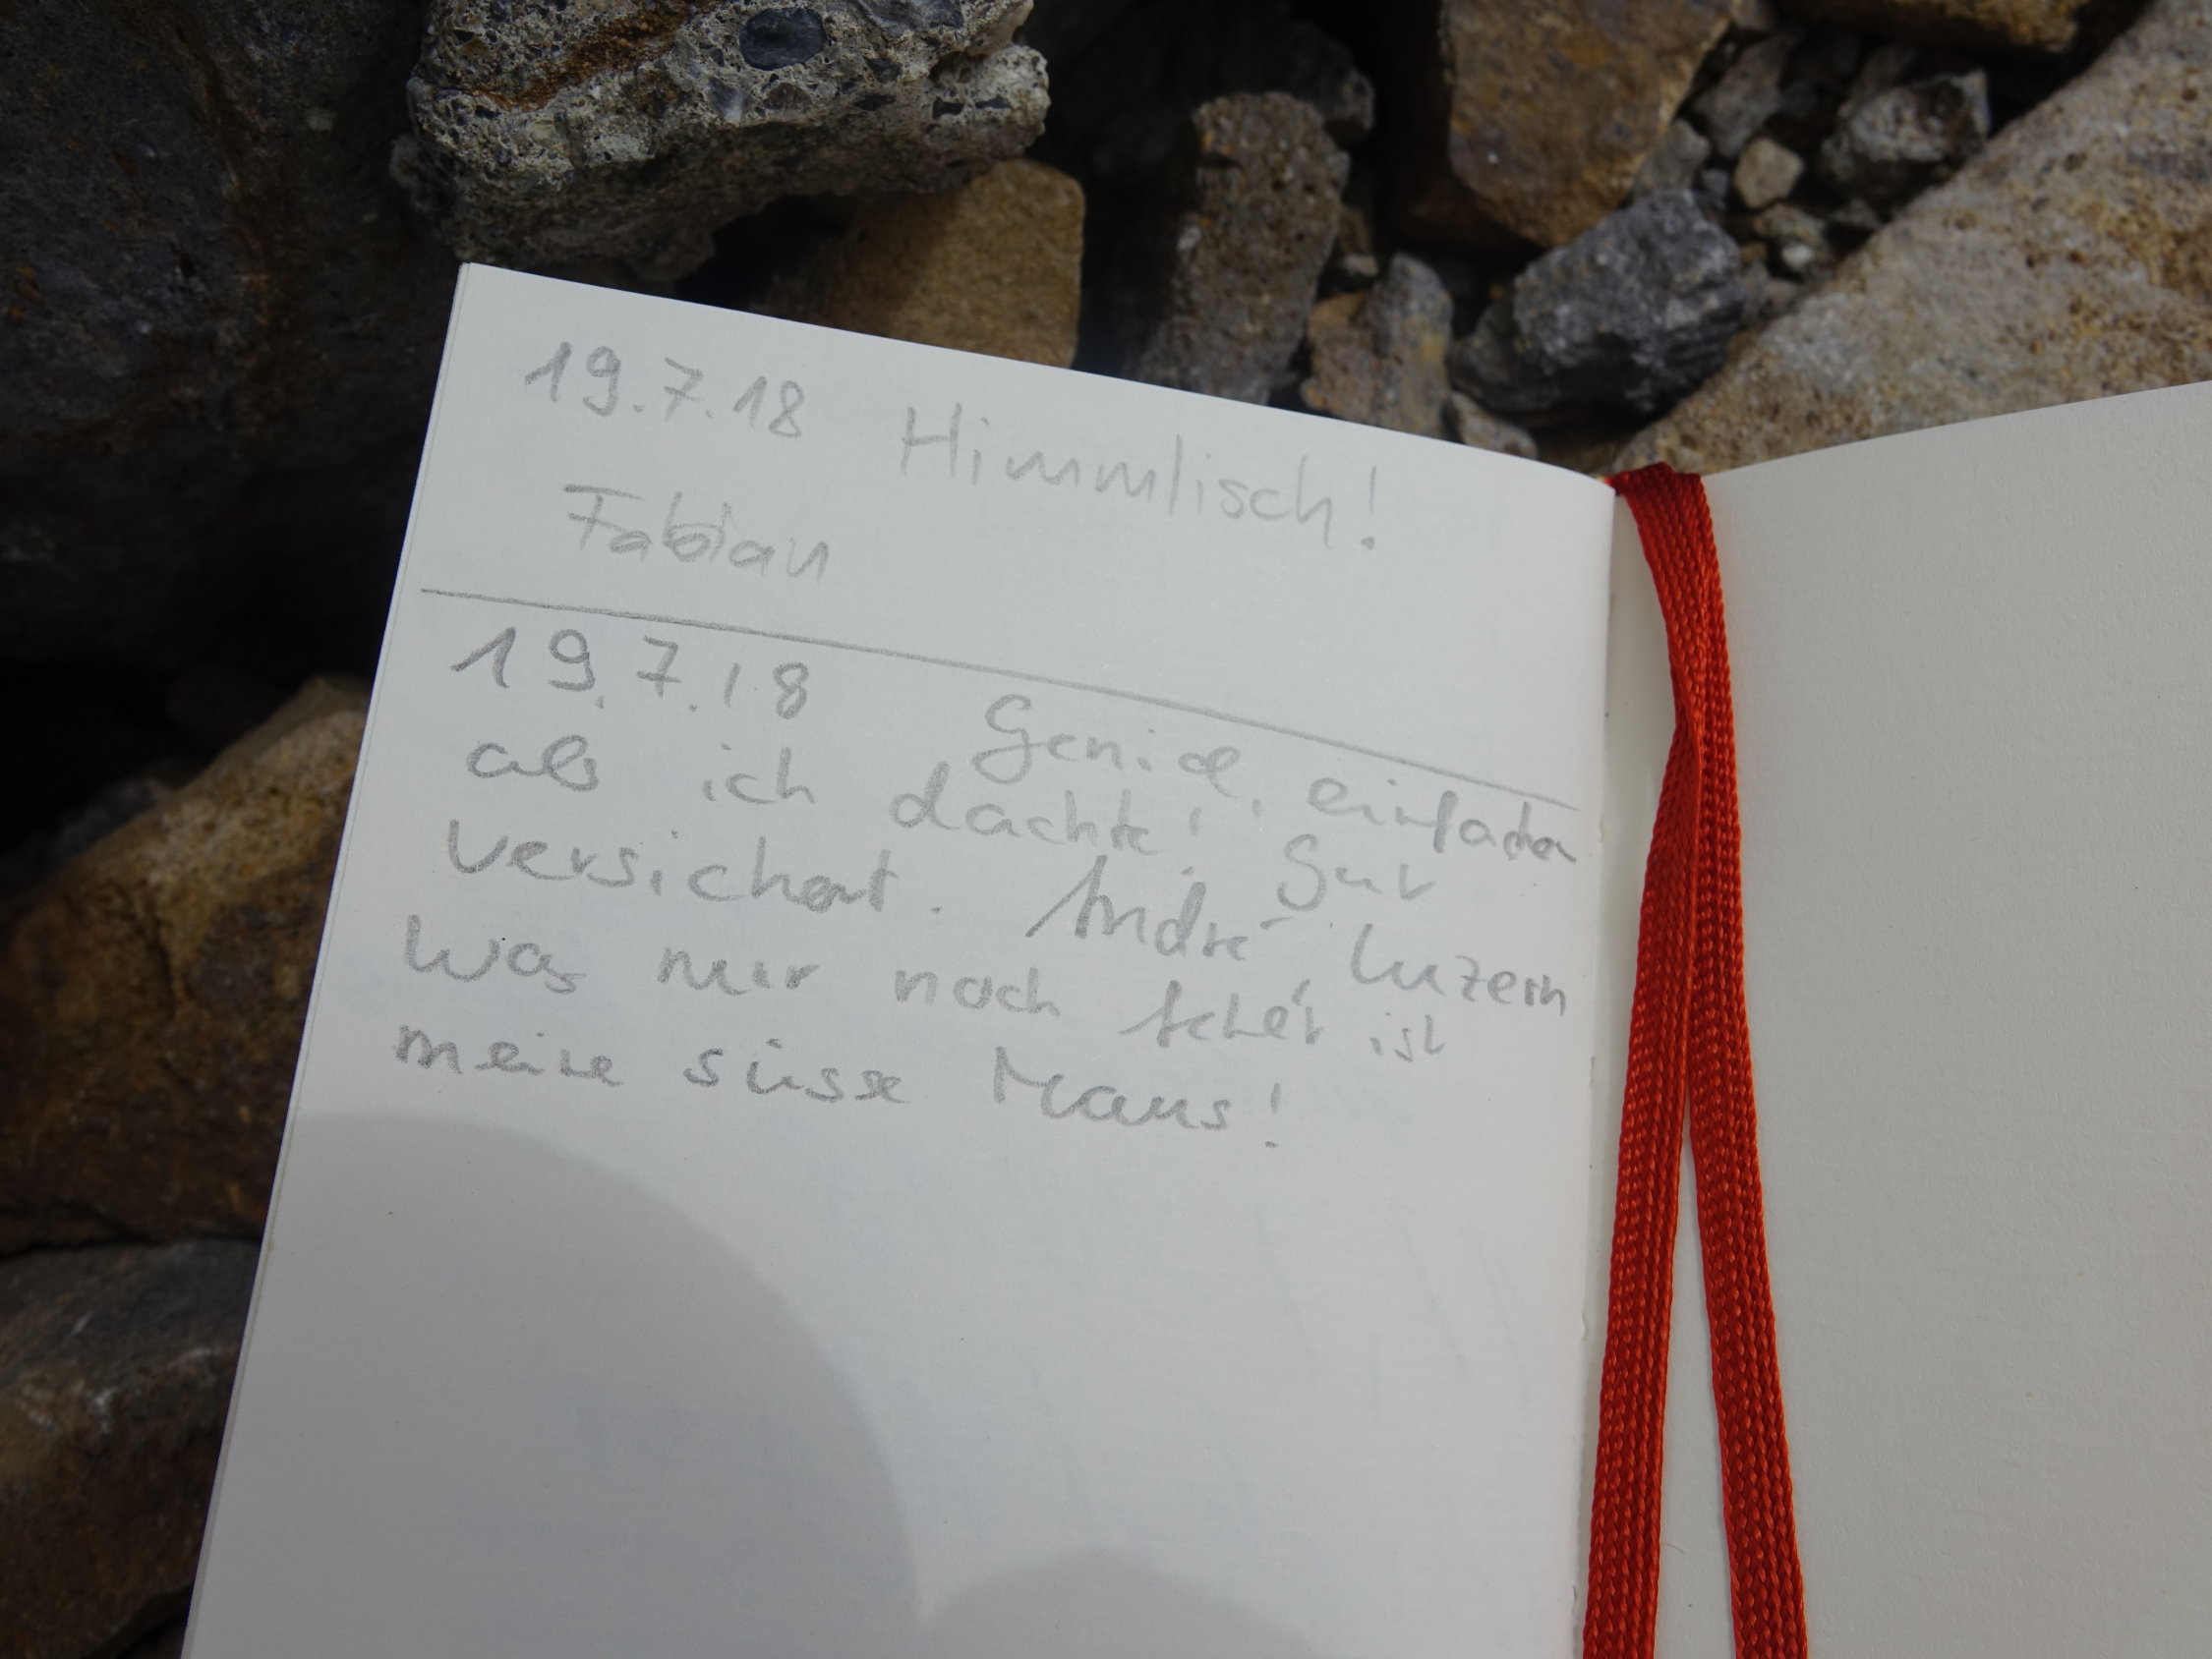 19.7.18 Himmlisch!
Fabian
19.7.18 Genial, einfacher
als ich dachte! Gut
versichert. André, Luzern
Was nur noch fehlt ist
meine süsse Maus!